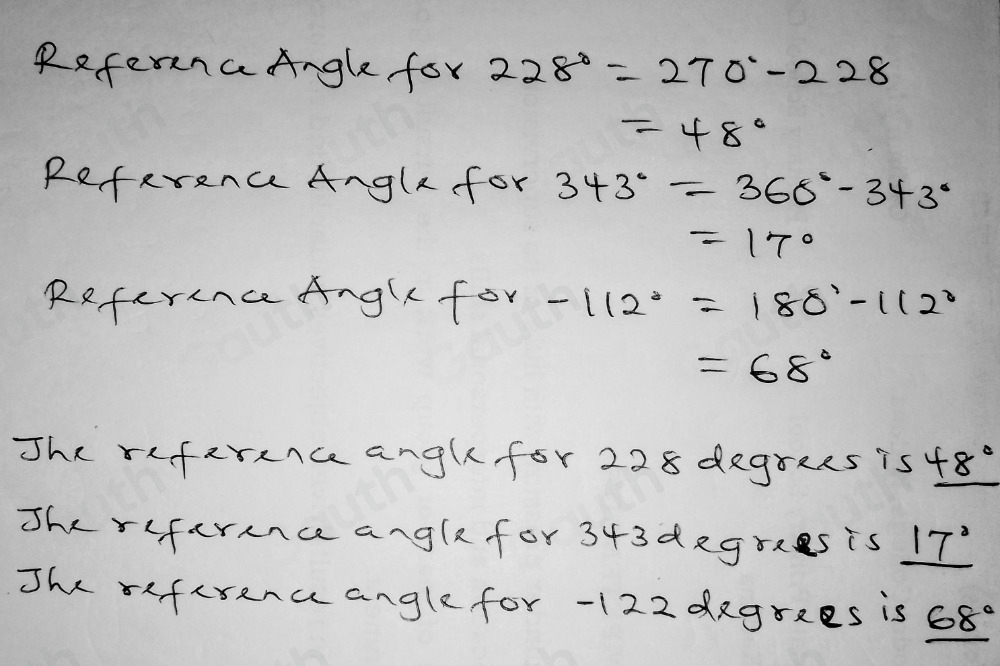 Reference Angle for 228° = 270° - 228
= 48°
Reference Angle for 343° = 360° - 343°
= 17°
Reference Angle for -112° = 180° - 112°
= 68°
The reference angle for 228 degrees is 48°
The reference angle for 343 degrees is 17°
The reference angle for -122 degrees is 68°